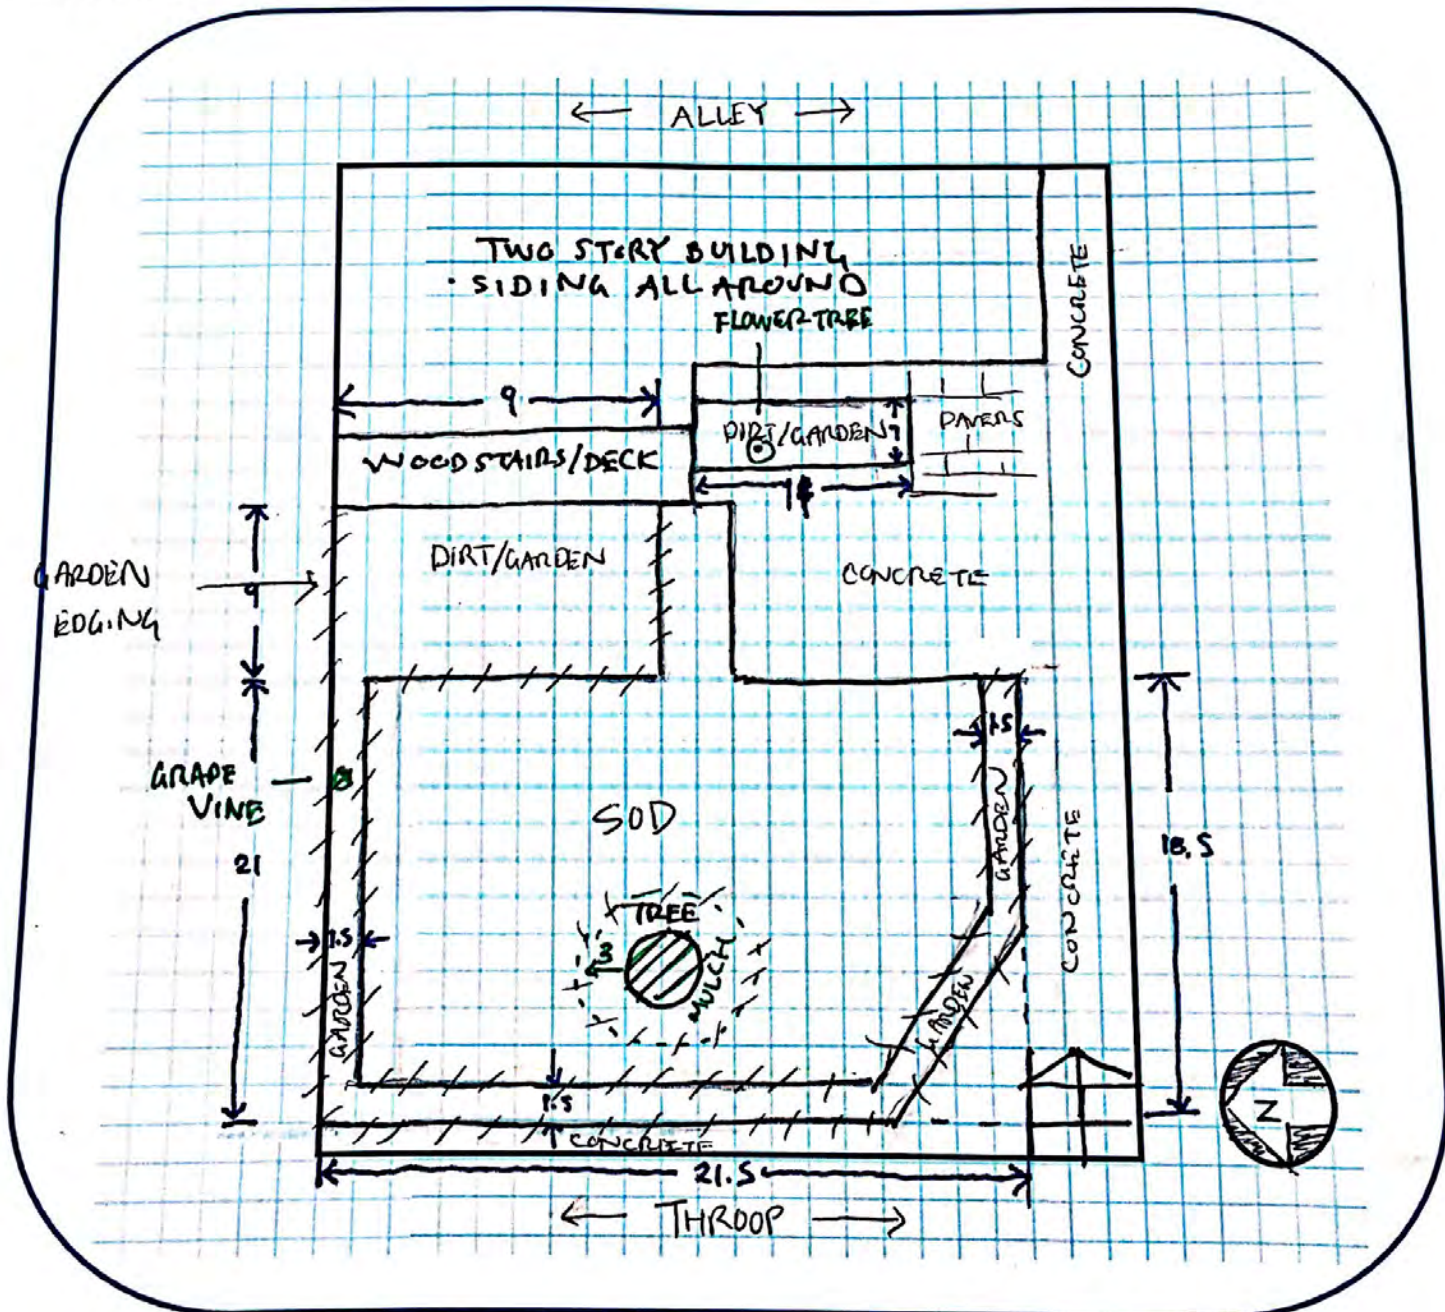 ← ALLEY →
TWO STORY BUILDING
· SIDING ALL AROUND
FLOWER TREE
CONCRETE
9
DIRT/GARDEN
PAVERS
WOOD STAIRS/DECK
DIRT/GARDEN
CONCRETE
GARDEN
EDGING
9
1.5
GRAPE
VINE
SOD
GARDEN
CONCRETE
18.5
21
TREE
3
MULCH
1.5
GARDEN
GARDEN
1.5
CONCRETE
N
21.5
← THROOP →